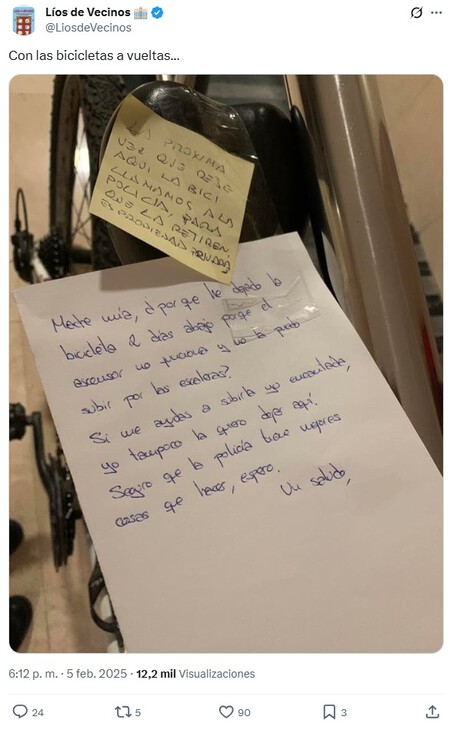 Líos de Vecinos
@LiosdeVecinos
Con las bicicletas a vueltas...
LA PRÓXIMA
VEZ QUE DEJE
AQUI LA BICI
LLAMAMOS A LA
POLICIA, PARA
QUE LA RETIREN.
ES PROPIEDAD PRIVADA
Madre mía, ¿por qe he dejado la
bicicleta 2 días abajo porqe el
ascensor no funciona y no la puedo
subir por las escaleras?
Si me ayudas a subirla yo encantada,
yo tampoco la quiero dejar aquí.
Seguro qe la policía tiene mejores
cosas qe hacer, espero.
Un saludo,
6:12 p. m. · 5 feb. 2025 · 12,2 mil Visualizaciones
24 5 90 3